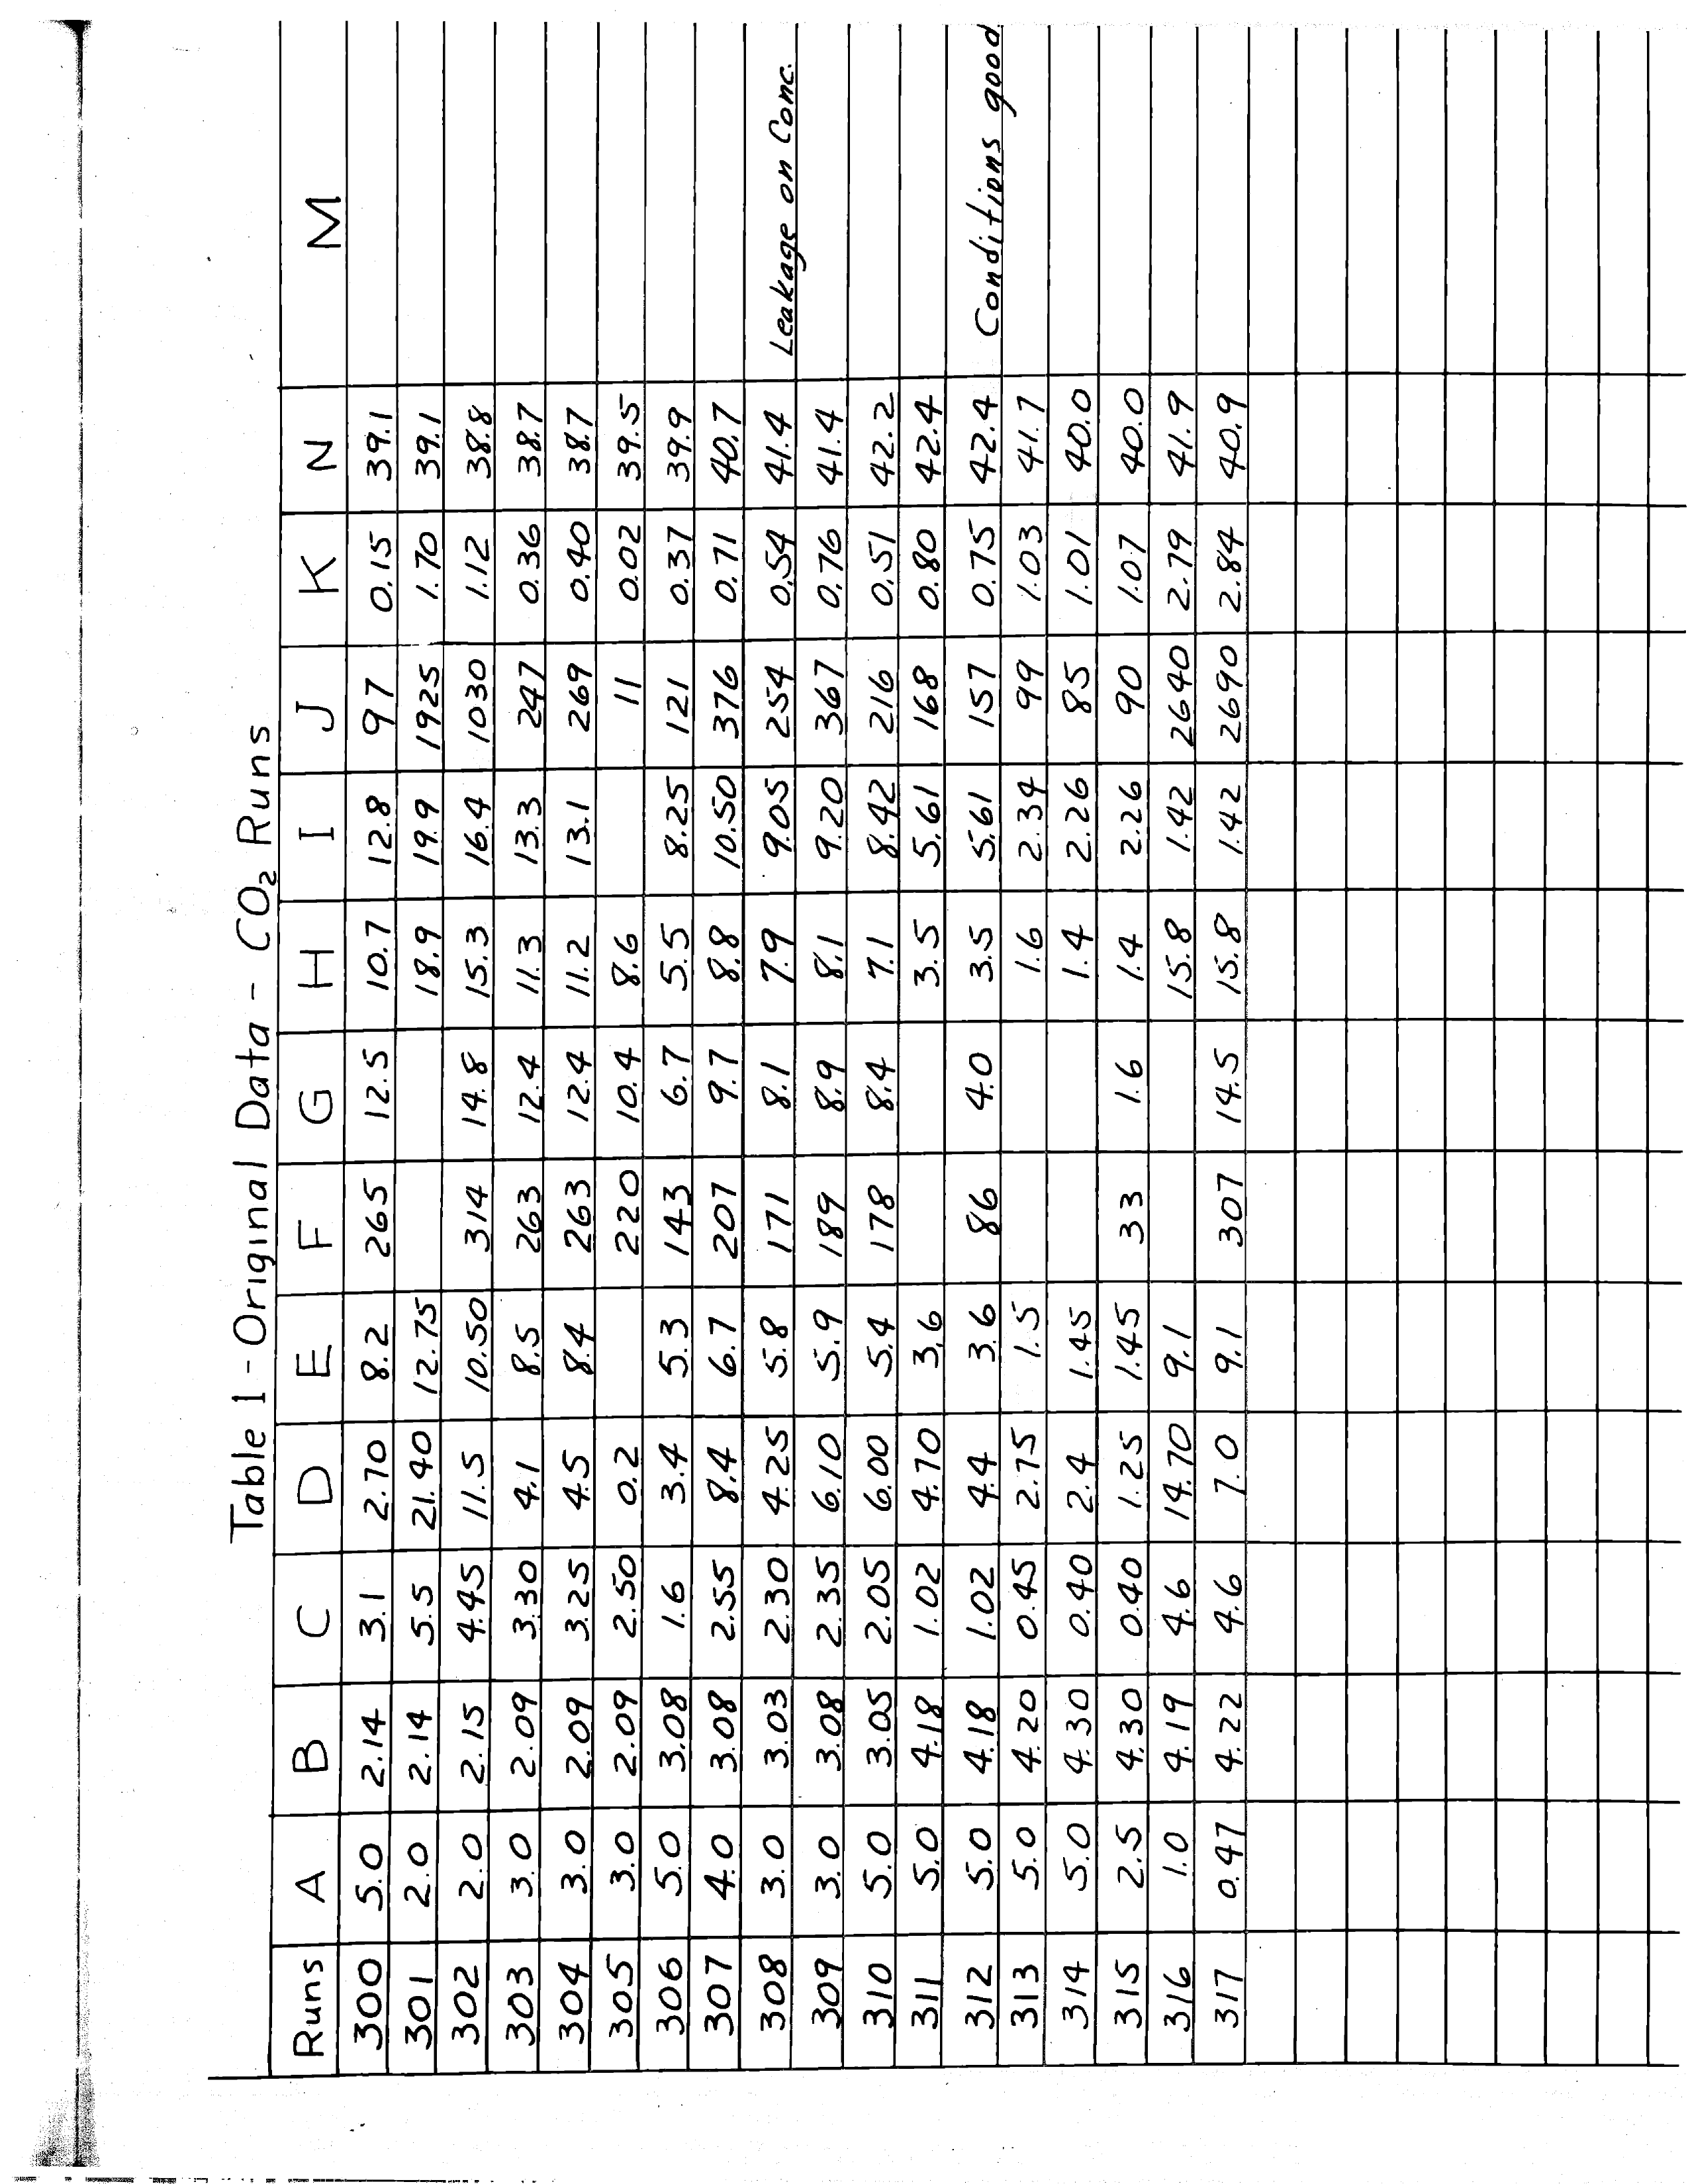 Table 1 - Original Data - CO₂ Runs
Runs A B C D E F G H I J K N M
300 5.0 2.14 3.1 2.70 8.2 265 12.5 10.7 12.8 97 0.15 39.1
301 2.0 2.14 5.5 21.40 12.75 18.9 19.9 1925 1.70 39.1
302 2.0 2.15 4.45 11.5 10.50 314 14.8 15.3 16.4 1030 1.12 38.8
303 3.0 2.09 3.30 4.1 8.5 263 12.4 11.3 13.3 247 0.36 38.7
304 3.0 2.09 3.25 4.5 8.4 263 12.4 11.2 13.1 269 0.40 38.7
305 3.0 2.09 2.50 0.2 220 10.4 8.6 11 0.02 39.5
306 5.0 3.08 1.6 3.4 5.3 143 6.7 5.5 8.25 121 0.37 39.9
307 4.0 3.08 2.55 8.4 6.7 207 9.7 8.8 10.50 376 0.71 40.7
308 3.0 3.03 2.30 4.25 5.8 171 8.1 7.9 9.05 254 0.54 41.4 Leakage on Conc.
309 3.0 3.08 2.35 6.10 5.9 189 8.9 8.1 9.20 367 0.76 41.4
310 5.0 3.05 2.05 6.00 5.4 178 8.4 7.1 8.42 216 0.51 42.2
311 5.0 4.18 1.02 4.70 3.6 3.5 5.61 168 0.80 42.4
312 5.0 4.18 1.02 4.4 3.6 86 4.0 3.5 5.61 157 0.75 42.4 Conditions good
313 5.0 4.20 0.45 2.75 1.5 1.6 2.34 99 1.03 41.7
314 5.0 4.30 0.40 2.4 1.45 1.4 2.26 85 1.01 40.0
315 2.5 4.30 0.40 1.25 1.45 33 1.6 1.4 2.26 90 1.07 40.0
316 1.0 4.19 4.6 14.70 9.1 15.8 1.42 2640 2.79 41.9
317 0.47 4.22 4.6 7.0 9.1 307 14.5 15.8 1.42 2690 2.84 40.9